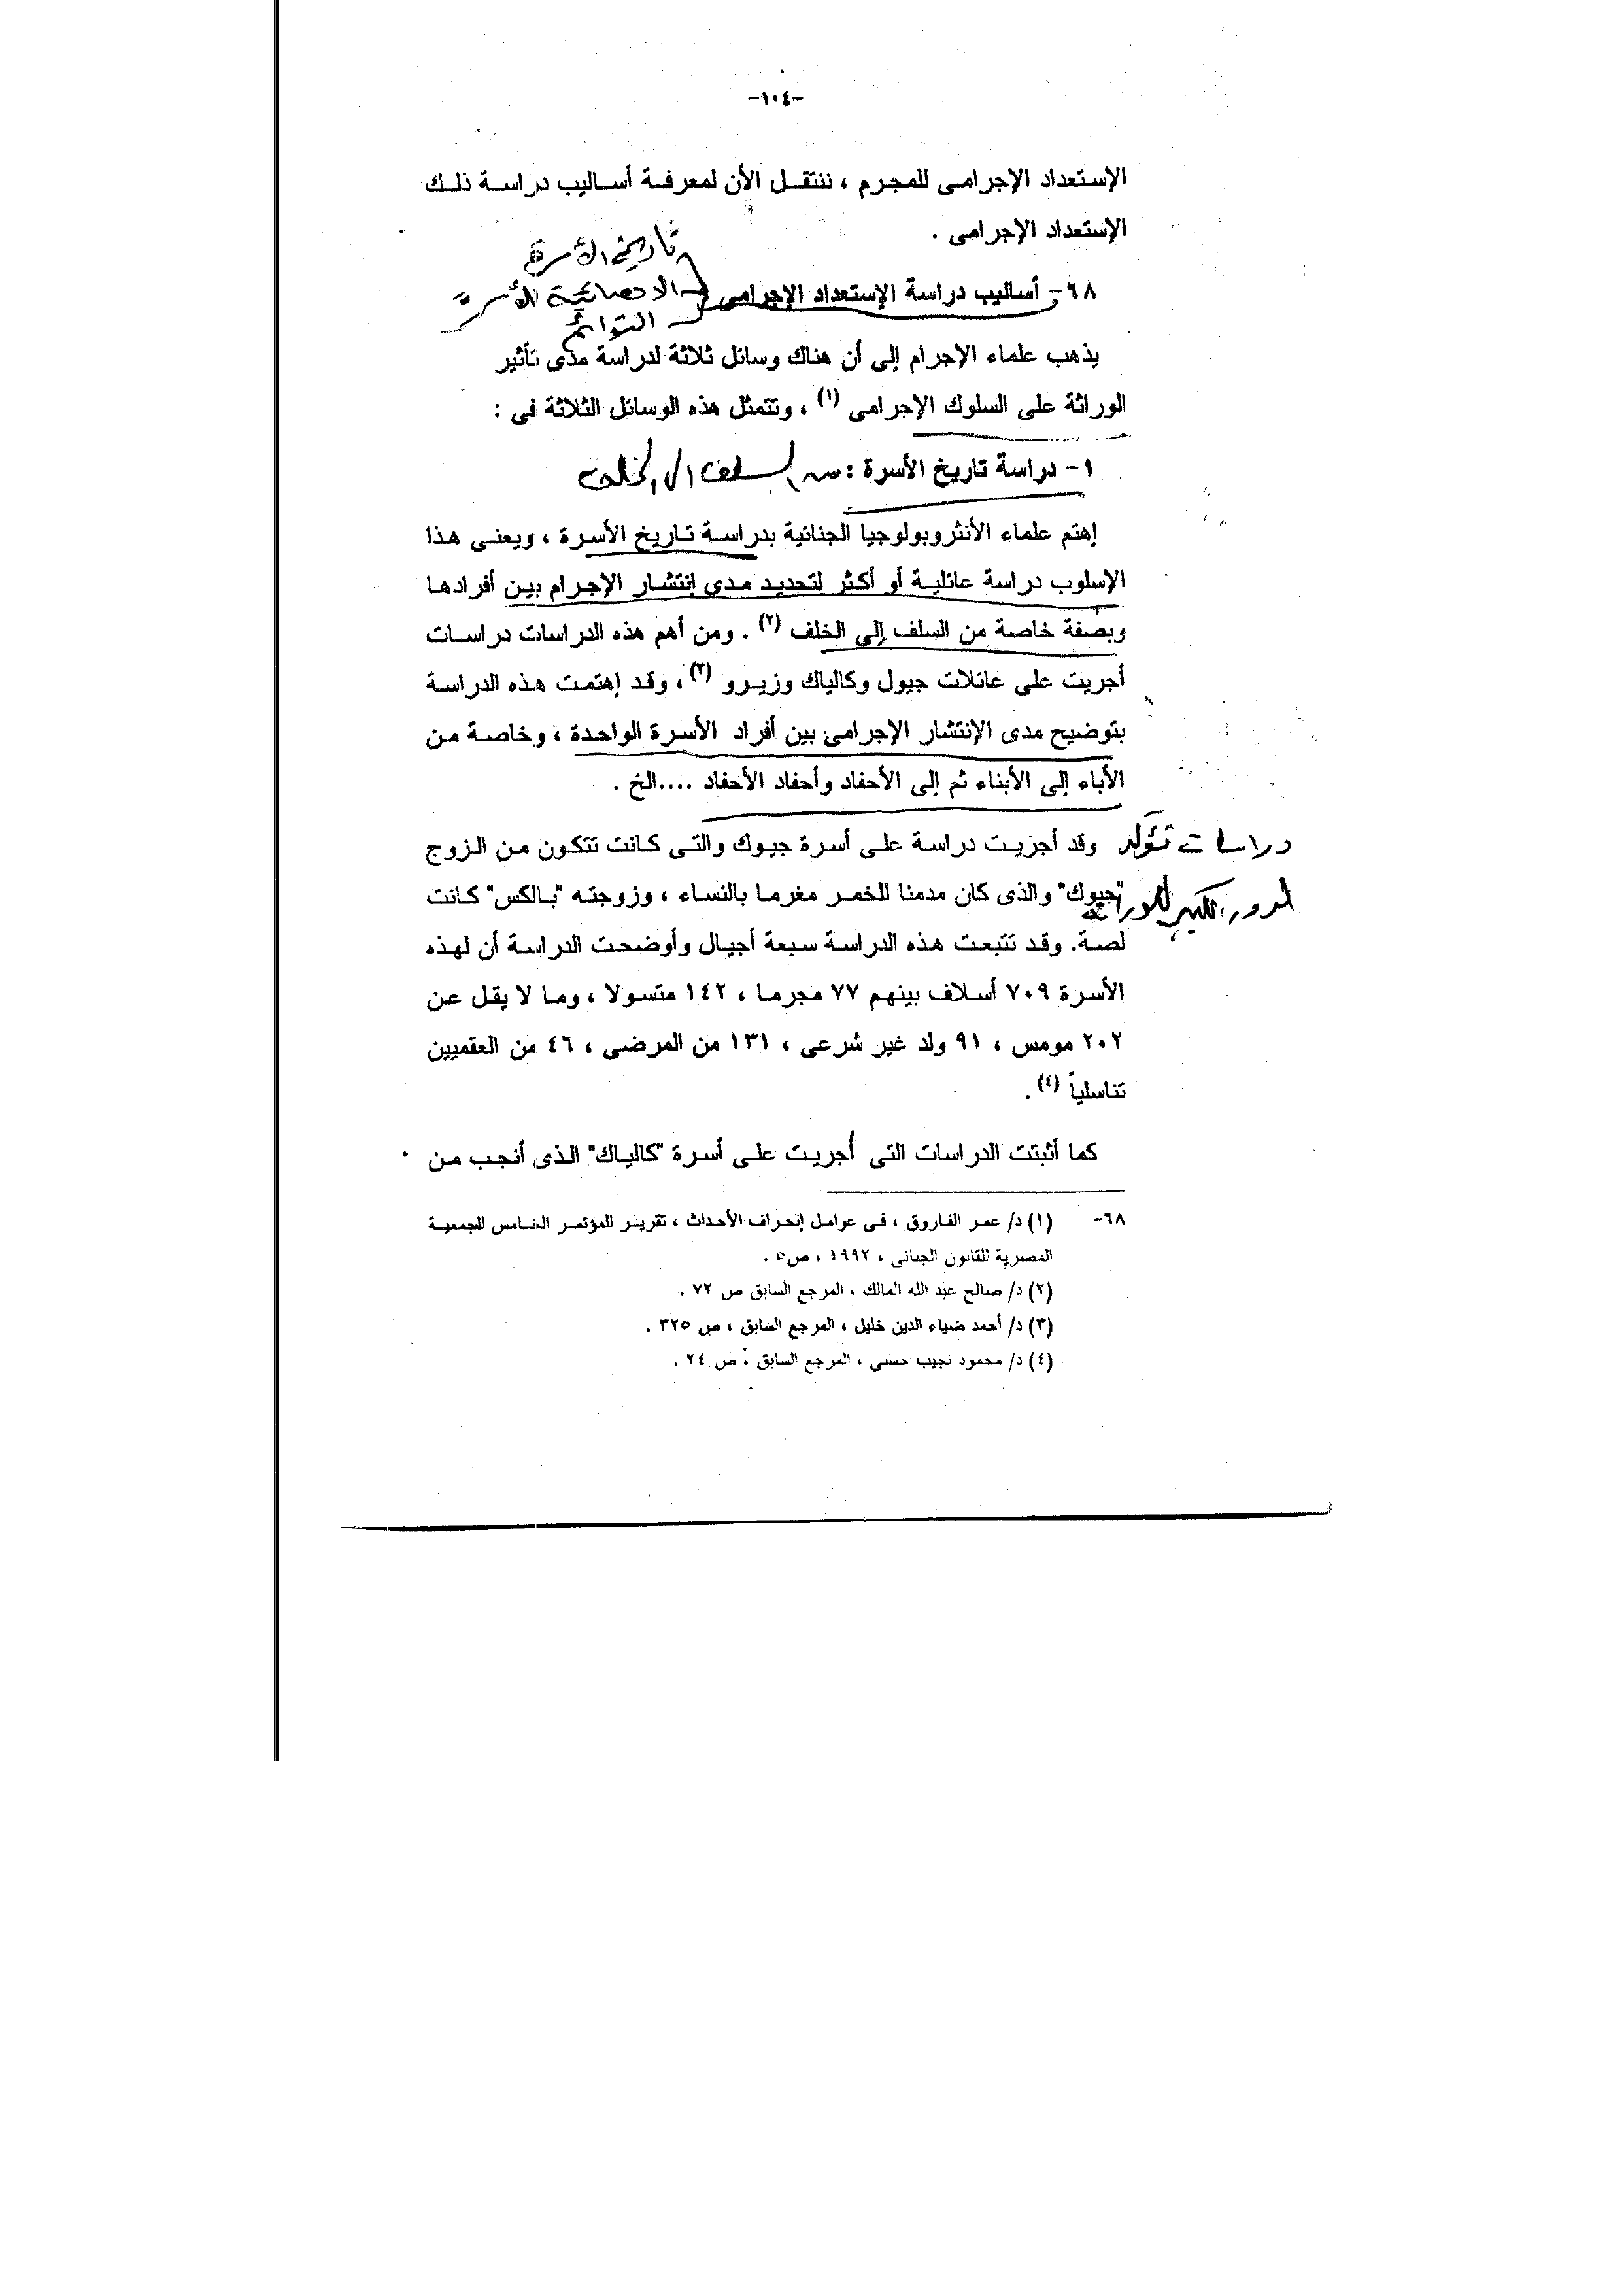 -١٠٤-
الإستعداد الإجرامى للمجرم ، ننتقل الأن لمعرفة أساليب دراسة ذلك
الإستعداد الإجرامى .
تاريخ الأسرة
٦٨- أساليب دراسة الإستعداد الإجرامى
الاحصائية للأسرة
التوائم
يذهب علماء الإجرام إلى أن هناك وسائل ثلاثة لدراسة مدى تأثير
الوراثة على السلوك الإجرامى (١) ، وتتمثل هذه الوسائل الثلاثة فى :
١- دراسة تاريخ الأسرة : من السلف الى الخلف
إهتم علماء الأنثروبولوجيا الجنائية بدراسة تاريخ الأسرة ، ويعنى هذا
الإسلوب دراسة عائلية أو أكثر لتحديد مدى إنتشار الإجرام بين أفرادها
وبصفة خاصة من السلف إلى الخلف (٢) . ومن أهم هذه الدراسات دراسات
أجريت على عائلات جيول وكالياك وزيرو (٣) ، وقد إهتمت هذه الدراسة
بتوضيح مدى الإنتشار الإجرامى بين أفراد الأسرة الواحدة ، وخاصة من
الأباء إلى الأبناء ثم إلى الأحفاد وأحفاد الأحفاد ....الخ .
دراسات تؤكد
وقد أجريت دراسة على أسرة جيوك والتى كانت تتكون من الزوج
الدور الكبير للوراثة
"جيوك" والذى كان مدمنا للخمر مغرما بالنساء ، وزوجته "بالكس" كانت
لصة. وقد تتبعت هذه الدراسة سبعة أجيال وأوضحت الدراسة أن لهذه
الأسرة ٧٠٩ أسلاف بينهم ٧٧ مجرما ، ١٤٢ متسولا ، وما لا يقل عن
٢٠٢ مومس ، ٩١ ولد غير شرعى ، ١٣١ من المرضى ، ٤٦ من العقميين
تناسلياً (٤) .
كما أثبتت الدراسات التى أُجريت على أسرة "كالياك" الذى أنجب من
٦٨- (١) د/ عمر الفاروق ، فى عوامل إنحراف الأحداث ، تقرير للمؤتمر الخامس للجمعية
المصرية للقانون الجنائى ، ١٩٩٢ ، ص٥ .
(٢) د/ صالح عبد الله المالك ، المرجع السابق ص ٧٢ .
(٣) د/ أحمد ضياء الدين خليل ، المرجع السابق ، ص ٣٢٥ .
(٤) د/ محمود نجيب حسنى ، المرجع السابق ، ص ٢٤ .